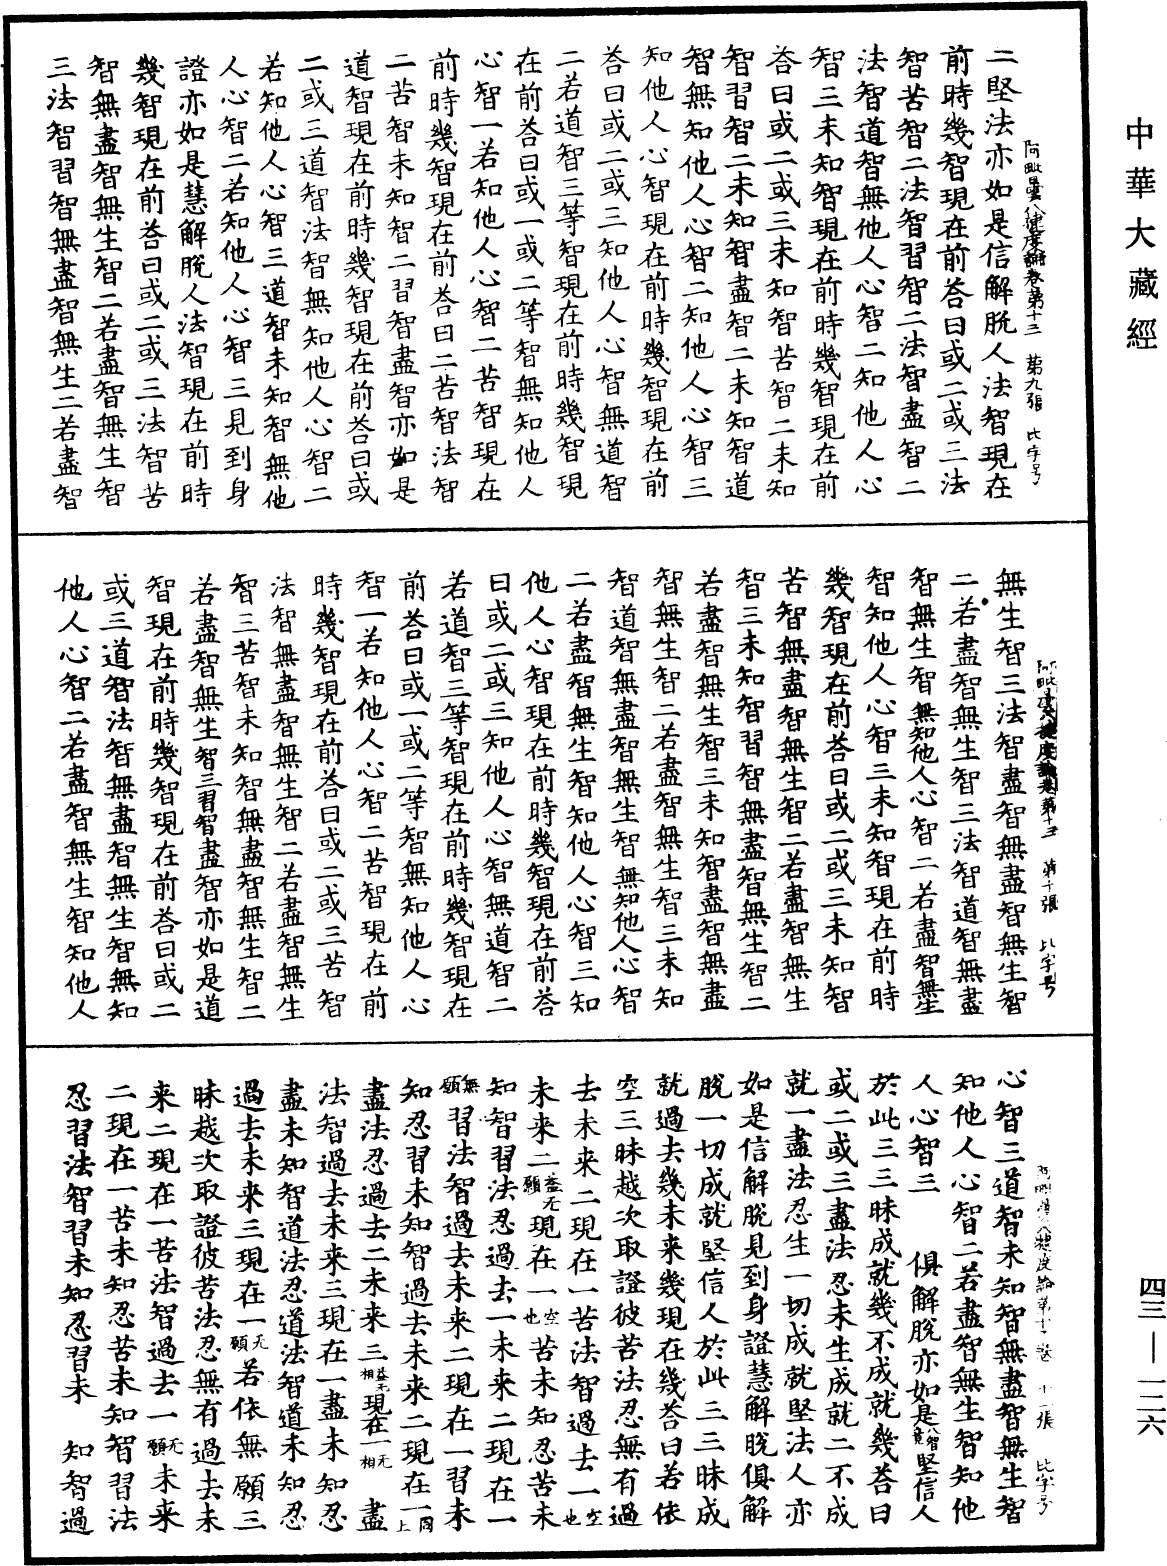 中華大藏經
二堅法亦如是信解脫人法智現在
前時幾智現在前荅曰或二或三法
智苦智二法智習智二法智盡智二
法智道智無他人心智二知他人心
智三未知智現在前時幾智現在前
荅曰或二或三未知智苦智二未知
智習智二未知智盡智二未知智道
智無知他人心智二知他人心智三
知他人心智現在前時幾智現在前
荅曰或二或三知他人心智無道智
二若道智三等智現在前時幾智現
在前荅曰或一或二等智無知他人
心智一若知他人心智二苦智現在
前時幾智現在前荅曰二苦智法智
二苦智未知智二習智盡智亦如是
道智現在前時幾智現在前荅曰或
二或三道智法智無知他人心智二
若知他人心智三道智未知智無他
人心智二若知他人心智三見到身
證亦如是慧解脫人法智現在前時
幾智現在前荅曰或二或三法智苦
智無盡智無生智二若盡智無生智
三法智習智無盡智無生二若盡智
阿毗曇八犍度論卷第十三 第九張 比字号
無生智三法智盡智無盡智無生智
二若盡智無生智三法智道智無盡
智無生智無知他人心智二若盡智無生
智知他人心智三未知智現在前時
幾智現在前荅曰或二或三未知智
苦智無盡智無生智二若盡智無生
智三未知智習智無盡智無生智二
若盡智無生智三未知智盡智無盡
智無生智二若盡智無生智三未知
智道智無盡智無生智無知他人心智
二若盡智無生智知他人心智三知
他人心智現在前時幾智現在前荅
曰或二或三知他人心智無道智二
若道智三等智現在前時幾智現在
前荅曰或一或二等智無知他人心
智一若知他人心智二苦智現在前
時幾智現在前荅曰或二或三苦智
法智無盡智無生智二若盡智無生
智三苦智未知智無盡智無生智二
若盡智無生智三習智盡智亦如是道
智現在前時幾智現在前荅曰或二
或三道智法智無盡智無生智無知
他人心智二若盡智無生智知他人
第十張 比字号
心智三道智未知智無盡智無生智
知他人心智二若盡智無生智知他
人心智三 俱解脫亦如是八智竟堅信人
於此三三昧成就幾不成就幾荅曰
或二或三盡法忍未生成就二不成
就一盡法忍生一切成就堅法人亦
如是信解脫見到身證慧解脫俱解
脫一切成就堅信人於此三三昧成
就過去幾未来幾現在幾荅曰若依
空三昧越次取證彼苦法忍無有過
去未来二現在一苦法智過去一空也
未来二益无願現在一空也苦未知忍苦未
知智習法忍過去一未来二現在一
無願習法智過去未来二現在一習未
知忍習未知智過去未来二現在一同上
盡法忍過去二未来三益无相現在一无相 盡
法智過去未来三現在一盡未知忍
盡未知智道法忍道法智道未知忍
過去未来三現在一无願若依無願三
昧越次取證彼苦法忍無有過去未
来二現在一苦法智過去一无願未来
二現在一苦未知忍苦未知智習法
忍習法智習未知忍習未 知智過
十一張 比字号
四三—一二六